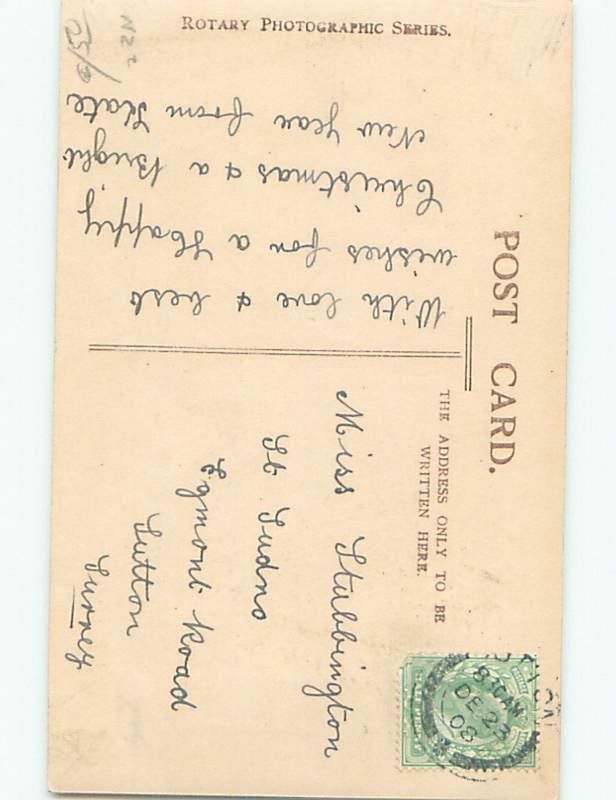 ROTARY PHOTOGRAPHIC SERIES.
POST CARD.
THE ADDRESS ONLY TO BE
WRITTEN HERE.
With love & best
wishes for a Happy
Christmas & a Bright
New Year from Kate
Miss Stubbington
St Tudno
Egmont Road
Sutton
Surrey
8.0AM
DE 23
08